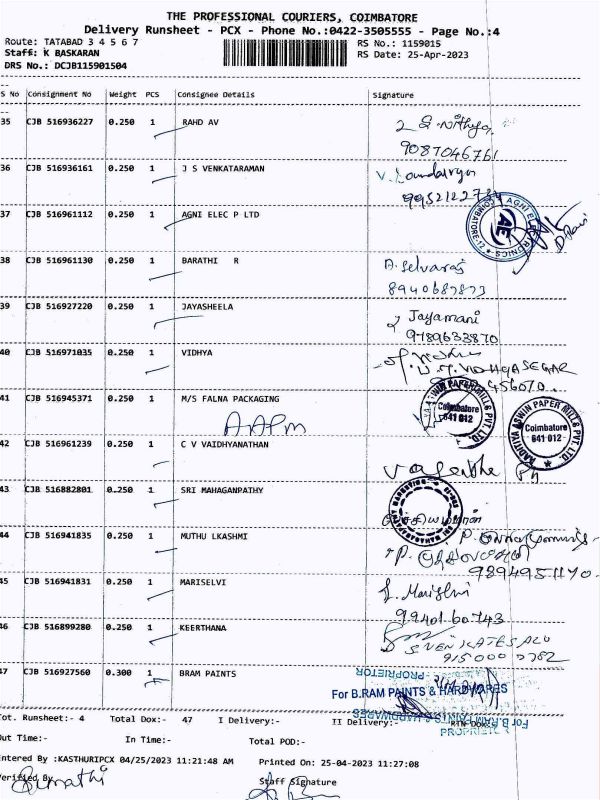 THE PROFESSIONAL COURIERS, COIMBATORE
Delivery Runsheet - PCX - Phone No.:0422-3505555 - Page No.:4
Route: TATABAD 3 4 5 6 7
RS No.: 1159015
Staff: K BASKARAN
RS Date: 25-Apr-2023
DRS No.: DCJB115901504
S No Consignment No Weight PCS Consignee Details Signature
35 CJB 516936227 0.250 1 RAHD AV
9087046761
36 CJB 516936161 0.250 1 J S VENKATARAMAN
37 CJB 516961112 0.250 1 AGNI ELEC P LTD
AGNI ELECTRONICS
AE
38 CJB 516961130 0.250 1 BARATHI R A. Selvaraj
8940687873
39 CJB 516927220 0.250 1 JAYASHEELA Jayamani
9789633870
40 CJB 516971035 0.250 1 VIDHYA
41 CJB 516945371 0.250 1 M/S FALNA PACKAGING
Coimbatore
641 012
AADITIYA ASWIN PAPER MILLS PVT. LTD.
Coimbatore
641 012
42 CJB 516961239 0.250 1 C V VAIDHYANATHAN
43 CJB 516882801 0.250 1 SRI MAHAGANPATHY
44 CJB 516941835 0.250 1 MUTHU LKASHMI
9894951170
45 CJB 516941831 0.250 1 MARISELVI
9940160743
46 CJB 516899280 0.250 1 KEERTHANA
47 CJB 516927560 0.300 1 BRAM PAINTS
PROPRIETOR
For B.RAM PAINTS & HARDWARES
For B.RAM PAINTS & HARDWARES
PROPRIETOR
Tot. Runsheet:- 4 Total Dox:- 47 I Delivery:- II Delivery:- RTN Dox:-
Out Time:- In Time:- Total POD:-
Entered By :KASTHURIPCX 04/25/2023 11:21:48 AM Printed On: 25-04-2023 11:27:08
Verified By Staff Signature